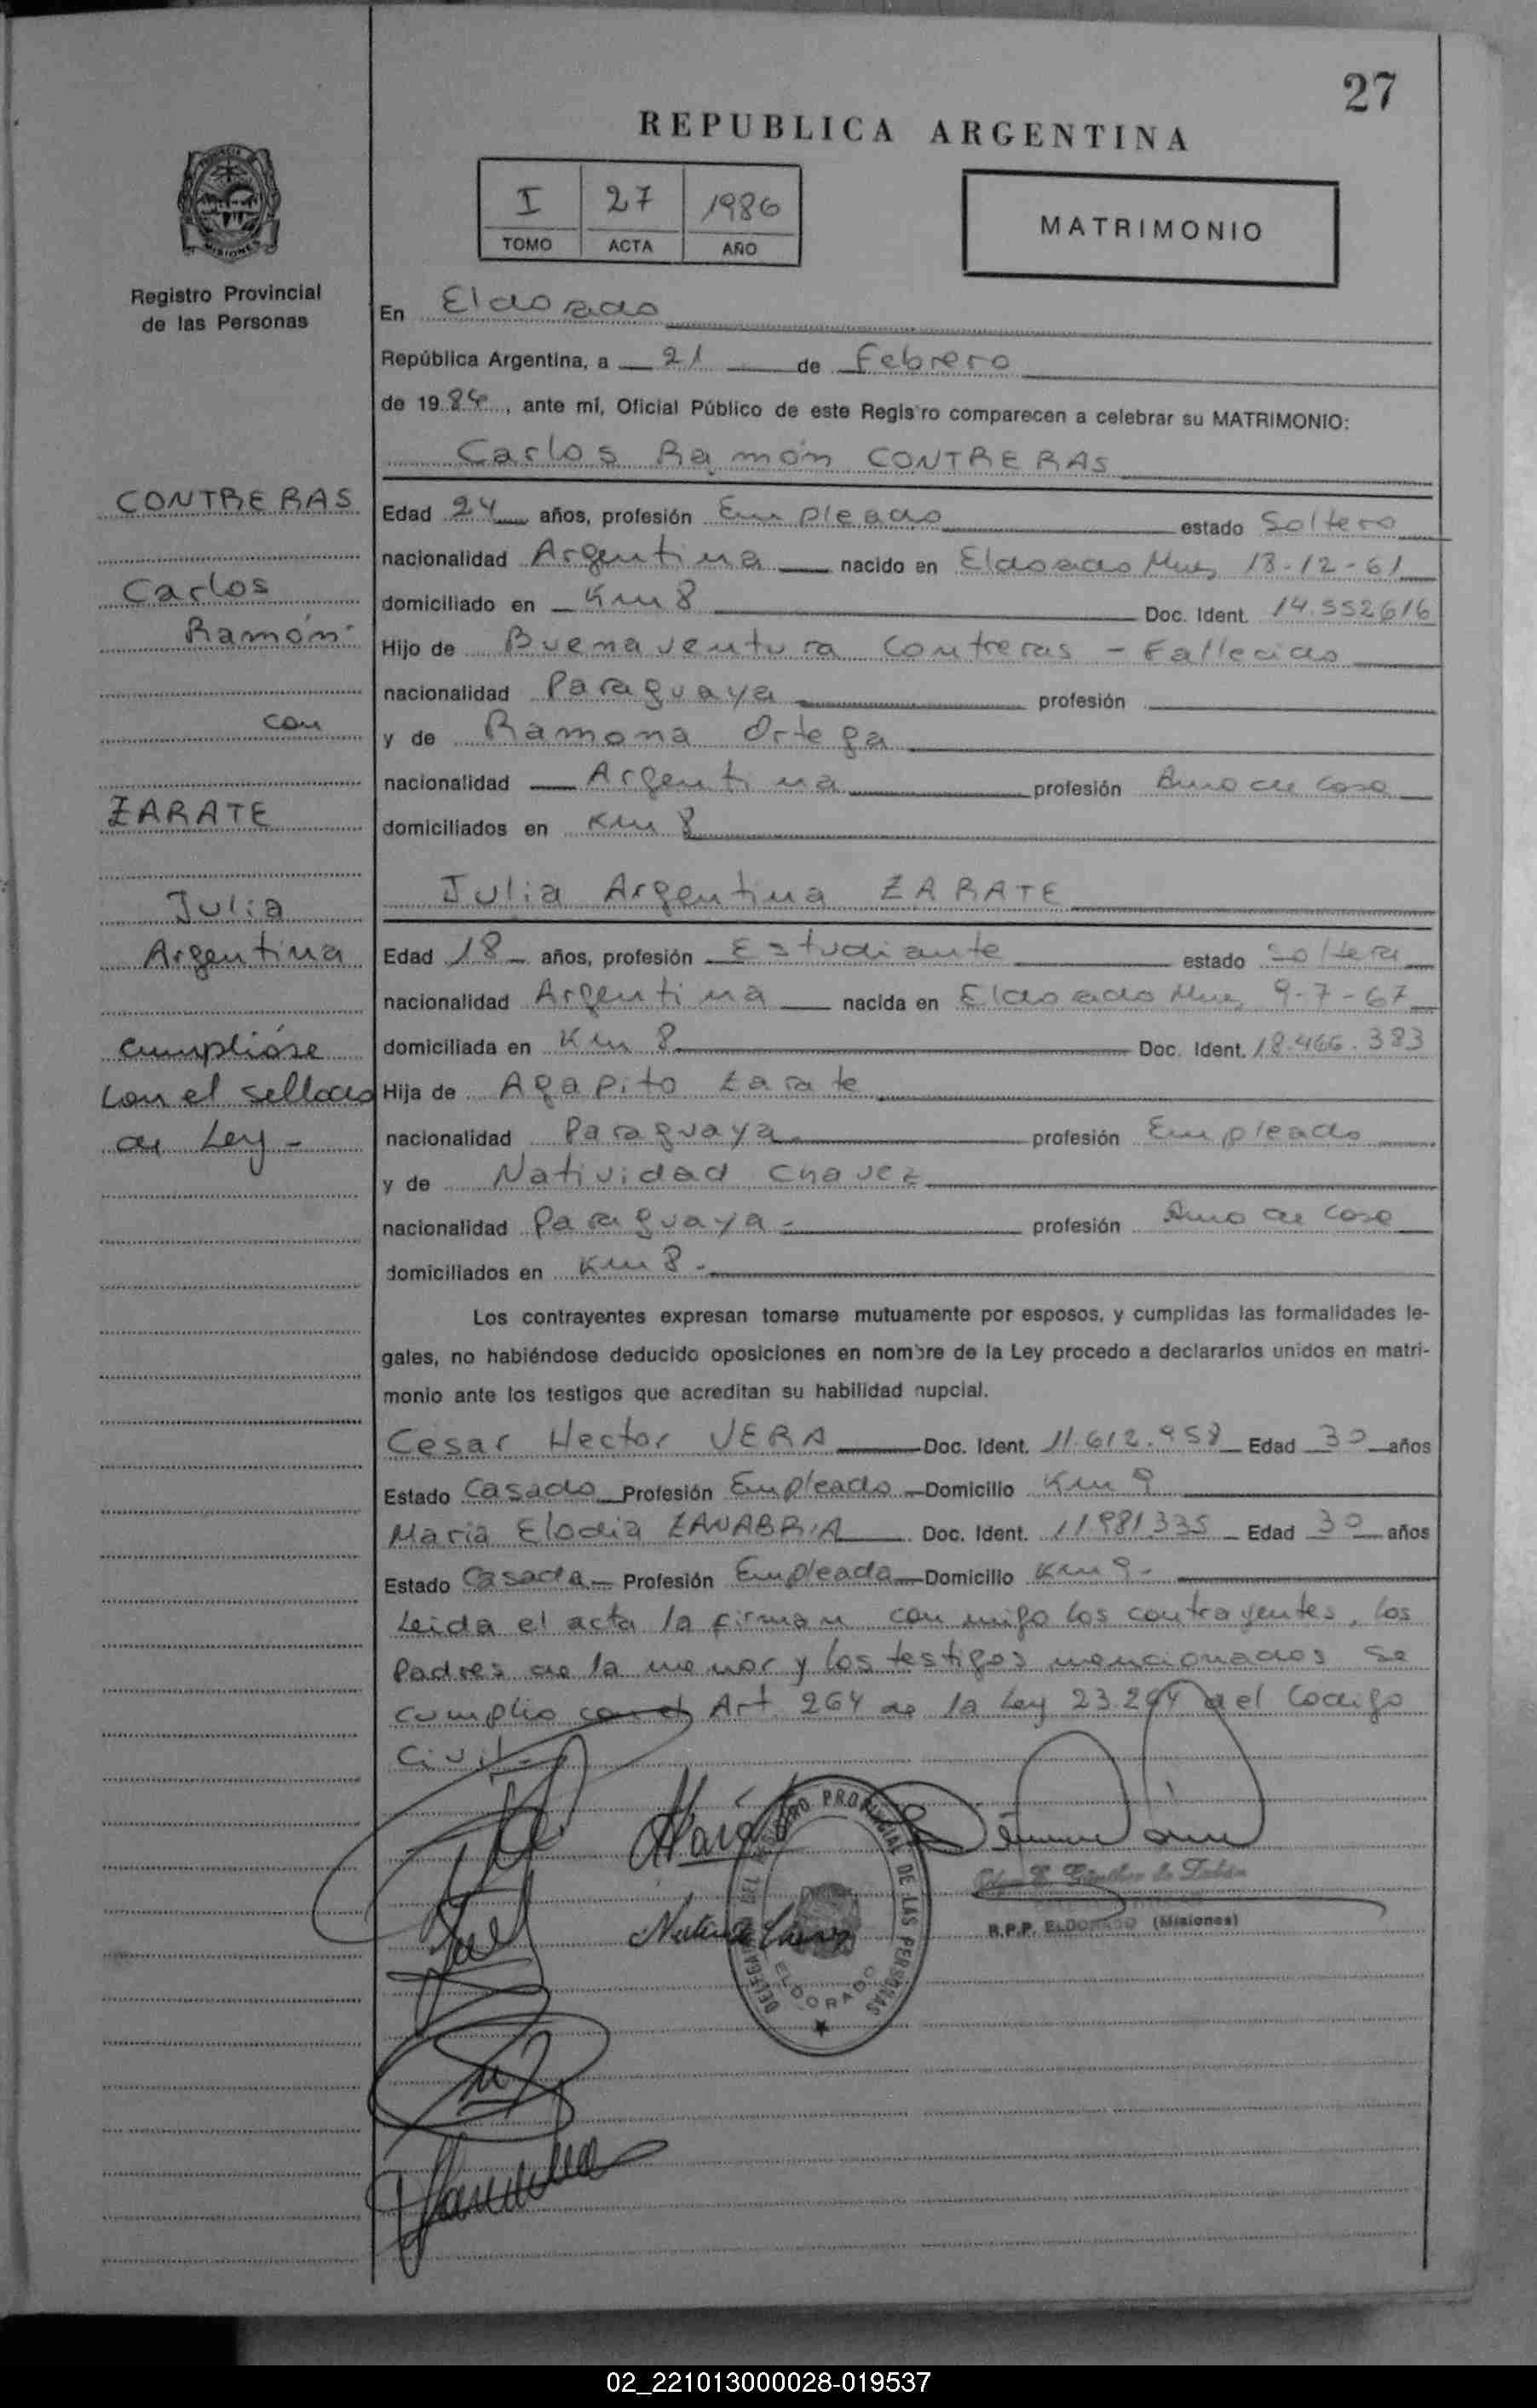 27
REPUBLICA ARGENTINA
I 27 1986
TOMO ACTA AÑO
MATRIMONIO
PROVINCIA
MISIONES
Registro Provincial
de las Personas
En Eldorado
República Argentina, a 21 de Febrero
de 19 , ante mí, Oficial Público de este Regis ro comparecen a celebrar su MATRIMONIO:
Carlos Ramón CONTRERAS
CONTRERAS
Carlos
Ramón
con
ZARATE
Julia
Argentina
cumplióse
con el sellado
de Ley -
Edad 24 años, profesión Empleado estado Soltero
nacionalidad Argentina nacido en Eldorado Mnes 13-12-61
domiciliado en Km 8 Doc. Ident. 14.552616
Hijo de Buenaventura Contreras - Fallecido
nacionalidad Paraguaya profesión
y de Ramona Ortega
nacionalidad Argentina profesión Ama de casa
domiciliados en Km 8
Julia Argentina ZARATE
Edad 18 años, profesión Estudiante estado soltera
nacionalidad Argentina nacida en Eldorado Mnes 9-7-67
domiciliada en Km 8 Doc. Ident. 18.466.383
Hija de Agapito Zarate
nacionalidad Paraguaya profesión Empleado
y de Natividad Chavez
nacionalidad Paraguaya - profesión Ama de casa
domiciliados en Km 8 -
Los contrayentes expresan tomarse mutuamente por esposos, y cumplidas las formalidades le-
gales, no habiéndose deducido oposiciones en nombre de la Ley procedo a declararlos unidos en matri-
monio ante los testigos que acreditan su habilidad nupcial.
Cesar Hector VERA Doc. Ident. 11.612.958 Edad 30 años
Estado Casado Profesión Empleado Domicilio Km 9
Maria Elodia ZANABRIA Doc. Ident. 11981335 Edad 30 años
Estado Casada Profesión Empleada Domicilio Km 9 -
Leida el acta la firman con migo los contrayentes, los
Padres de la menor y los testigos mencionados se
cumplio con el Art 264 de la Ley 23.264 del Codigo
Civil -
REGISTRO PROVINCIAL DE LAS PERSONAS
ELDORADO
R.P.P. ELDORADO (Misiones)
02_221013000028-019537